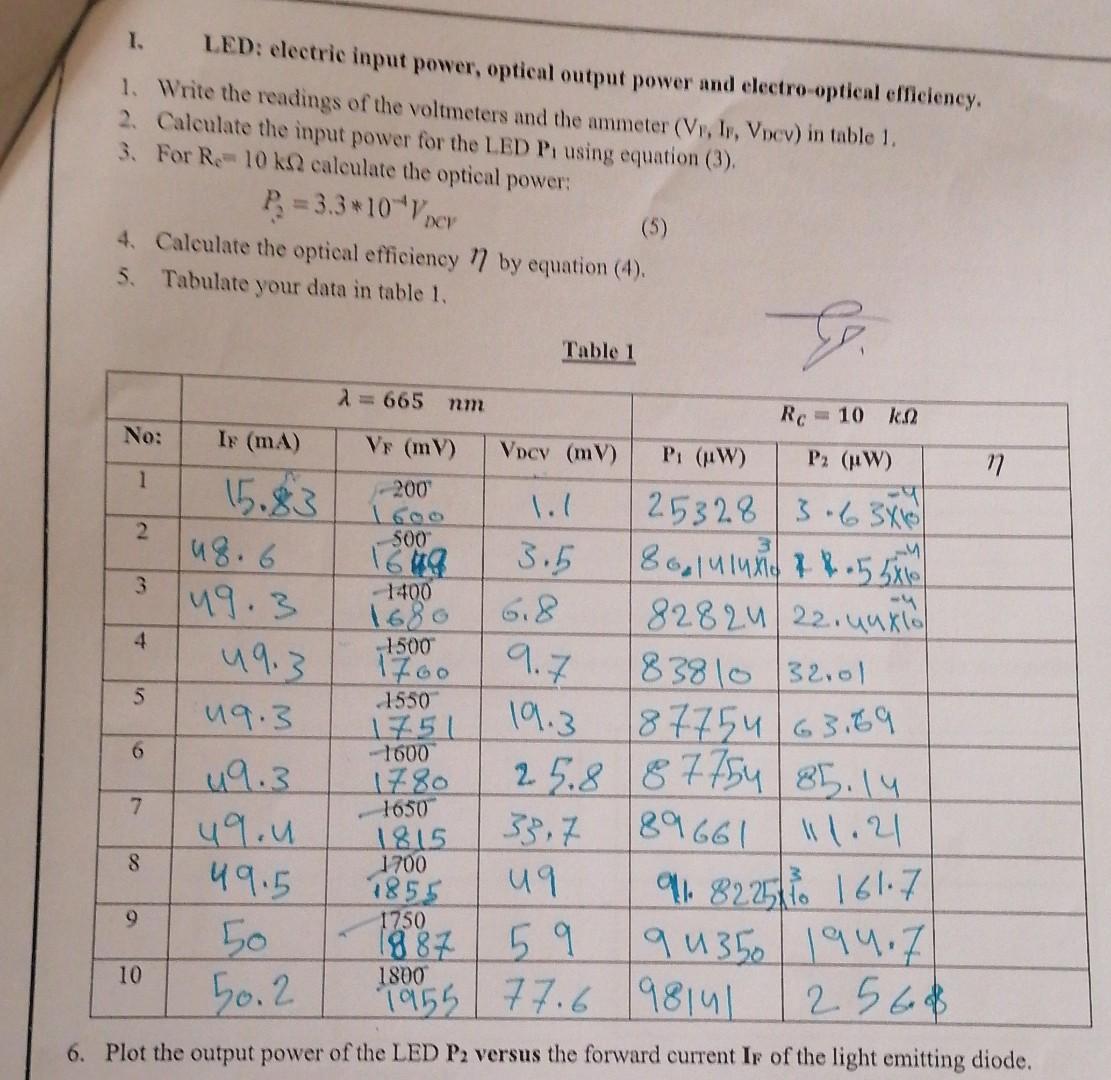 I. LED: electric input power, optical output power and electro-optical efficiency.
1. Write the readings of the voltmeters and the ammeter (VF, IF, VDCV) in table 1.
2. Calculate the input power for the LED P1 using equation (3).
3. For Rc= 10 kΩ calculate the optical power:
P2 = 3.3*10⁻⁴VDCV (5)
4. Calculate the optical efficiency η by equation (4).
5. Tabulate your data in table 1.
Table 1
λ = 665 nm RC = 10 kΩ
No: IF (mA) VF (mV) VDCV (mV) P1 (μW) P2 (μW) η
1 15.83 200 1600 1.1 25328 3.63x10⁻⁴
2 48.6 500 1649 3.5 80.1414x10³ .55x10⁻⁴
3 49.3 1400 1680 6.8 82824 22.44x10⁻⁴
4 49.3 1500 1700 9.7 83810 32.01
5 49.3 1550 1751 19.3 87754 63.69
6 49.3 1600 1780 25.8 87754 85.14
7 49.4 1650 1815 33.7 89661 111.21
8 49.5 1700 1855 49 91.8225x10³ 161.7
9 50 1750 1887 59 94350 194.7
10 50.2 1800 1955 77.6 98141 256.8
6. Plot the output power of the LED P2 versus the forward current IF of the light emitting diode.